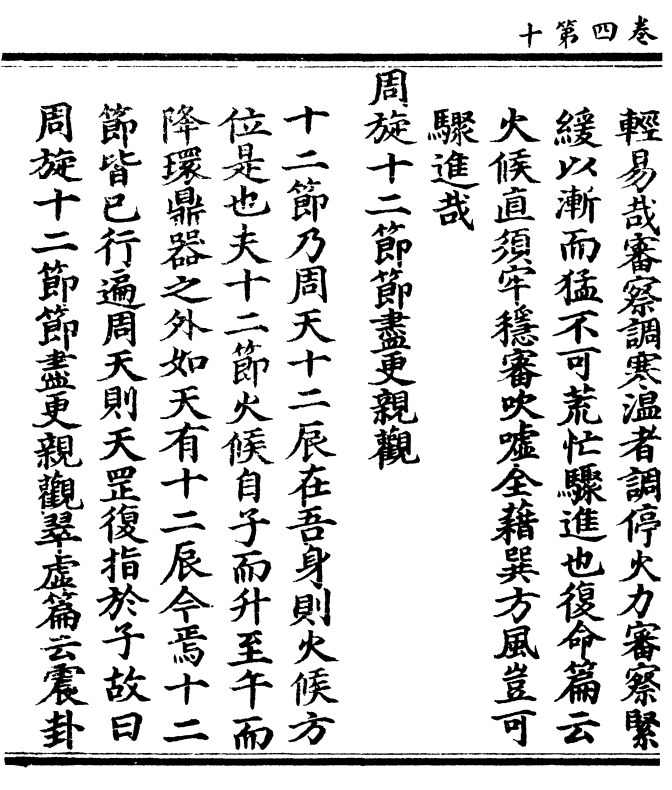 卷四第十
輕易哉審察調寒温者調停火力審察緊
緩以漸而猛不可荒忙驟進也復命篇云
火候直須牢穩審吹噓全藉巽方風豈可
驟進哉
周旋十二節節盡更親觀
十二節乃周天十二辰在吾身則火候方
位是也夫十二節火候自子而升至午而
降環鼎器之外如天有十二辰今焉十二
節皆已行遍周天則天罡復指於子故曰
周旋十二節節盡更親觀翠虛篇云震卦